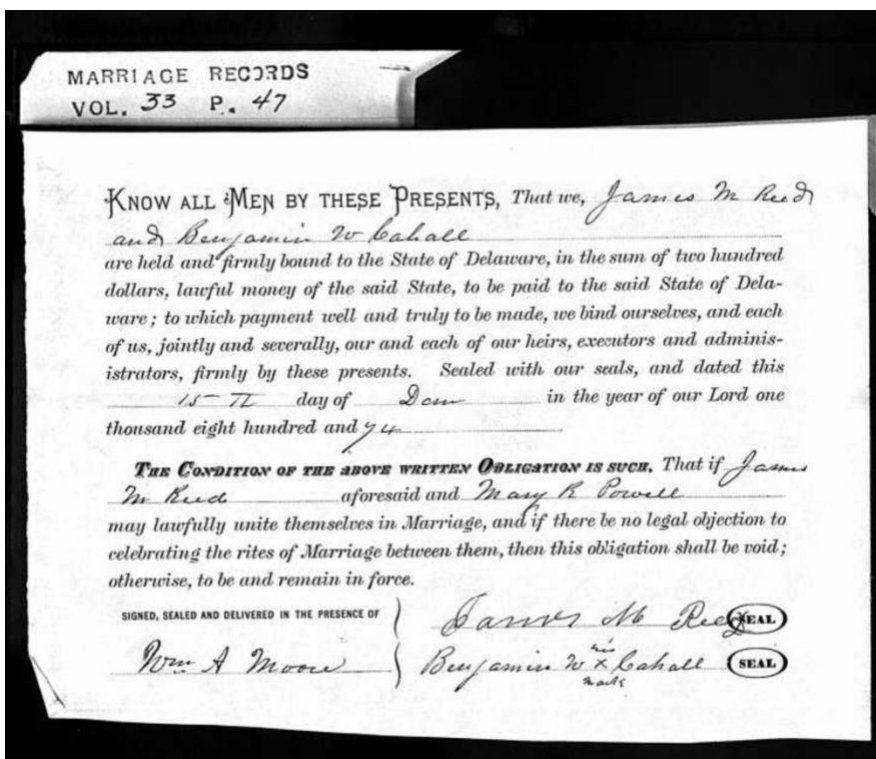 MARRIAGE RECORDS
VOL. 33 P. 47
KNOW ALL MEN BY THESE PRESENTS, That we, James M Reed
and Benjamin W Cahall
are held and firmly bound to the State of Delaware, in the sum of two hundred
dollars, lawful money of the said State, to be paid to the said State of Dela-
ware; to which payment well and truly to be made, we bind ourselves, and each
of us, jointly and severally, our and each of our heirs, executors and adminis-
istrators, firmly by these presents. Sealed with our seals, and dated this
15 day of in the year of our Lord one
thousand eight hundred and 74
THE CONDITION OF THE ABOVE WRITTEN OBLIGATION IS SUCH, That if James
M Reed aforesaid and Mary R Powell
may lawfully unite themselves in Marriage, and if there be no legal objection to
celebrating the rites of Marriage between them, then this obligation shall be void;
otherwise, to be and remain in force.
SIGNED, SEALED AND DELIVERED IN THE PRESENCE OF
James M Reed SEAL
Wm A Moore
Benjamin W his x mark Cahall SEAL